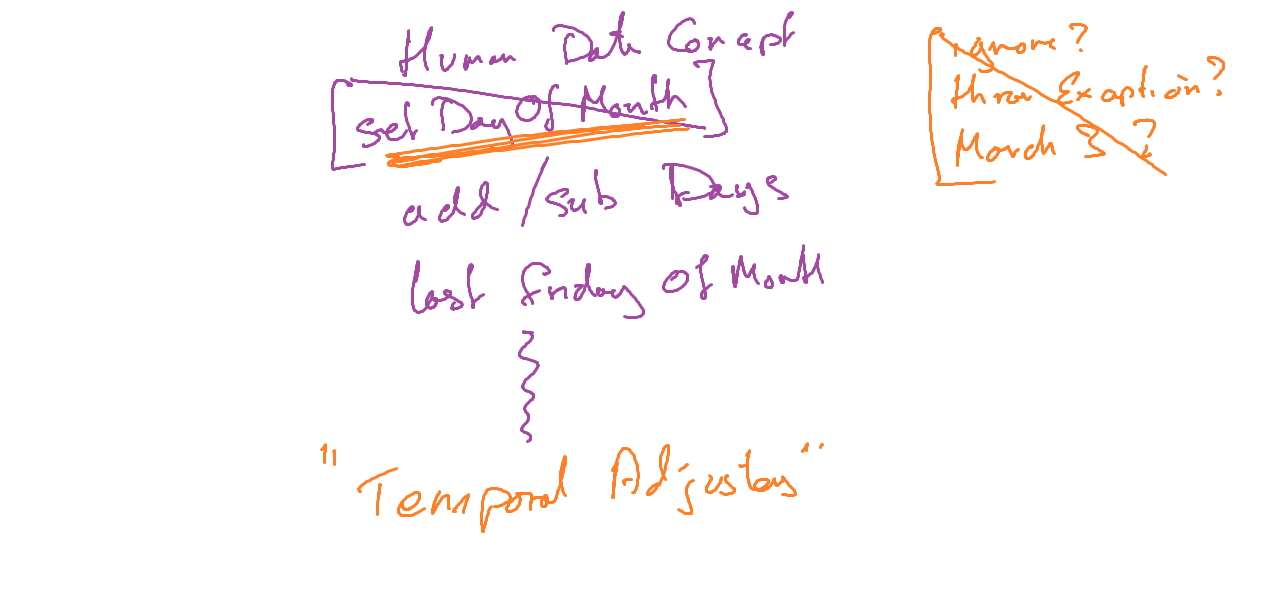 Human Date Concept
set Day Of Month
add / sub Days
last friday Of Month
"Temporal Adjusters"
ignore?
throw Exception?
March 3?